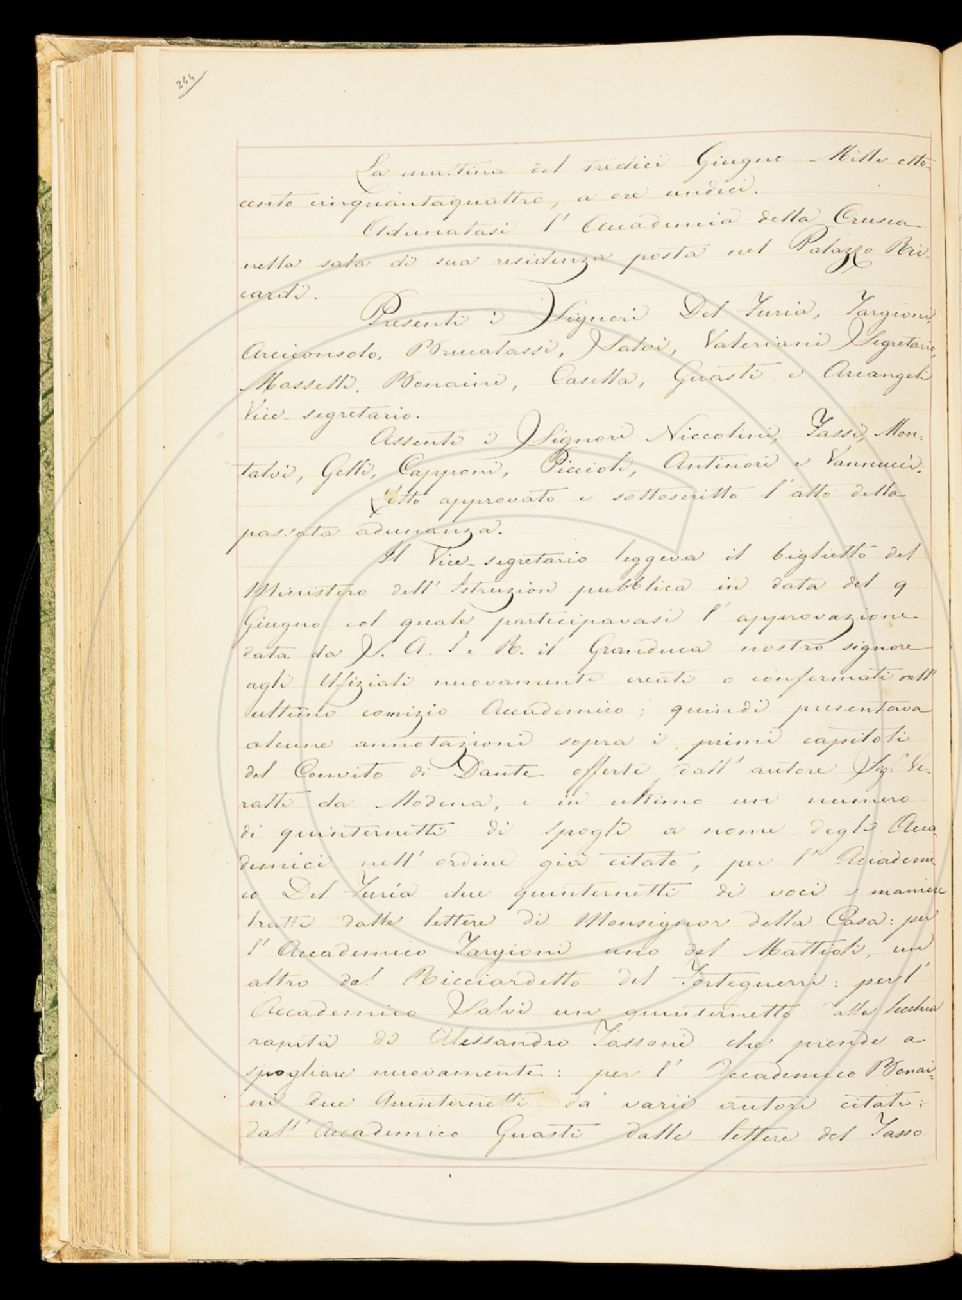 264
La mattina del tredici Giugno Mille otto-
cento cinquantaquattro, a ore undici.
Adunatasi l'Accademia della Crusca
nella sala di sua residenza posta nel Palazzo Ric-
cardi.
Presenti i Signori Del Furia, Targioni
Arciconsolo, Brucalassi, Salvi, Valeriani Segretario,
Masselli, Bonaini, Casella, Guasti e Arcangeli
Vice-segretario.
Assenti i Signori Niccolini, Tassi, Mon-
talvi, Gelli, Capponi, Piccioli, Antinori e Vannucci.
Letto approvato e sottoscritto l'atto della
passata adunanza.
Il Vice-segretario leggeva il biglietto del
Ministero dell'Istruzion pubblica in data del 9
Giugno col quale participavasi l'approvazione
data da S. A. I. e R. il Granduca nostro signore
agli Ufiziali nuovamente creati o confermati nell'
ultimo comizio Accademico; quindi presentava
alcune annotazioni sopra i primi capitoli
del Convito di Dante offerte dall'autore Sig. Ve-
ratti da Modena, e in ultimo un numero
di quinternetti di spogli a nome degli Acca-
demici nell'ordine già citato, per l'Accademi-
co Del Furia due quinternetti di voci e maniere
tratte dalle lettere di Monsignor della Casa: per
l'Accademico Targioni uno del Mattioli, un
altro del Ricciardetto del Forteguerri; per l'
Accademico Salvi un quinternetto dalla Secchia
rapita di Alessandro Tassoni che prende a
spogliare nuovamente: per l'Accademico Bonai-
ni due Quinternetti da varii autori citati:
dall'Accademico Guasti dalle lettere del Tasso